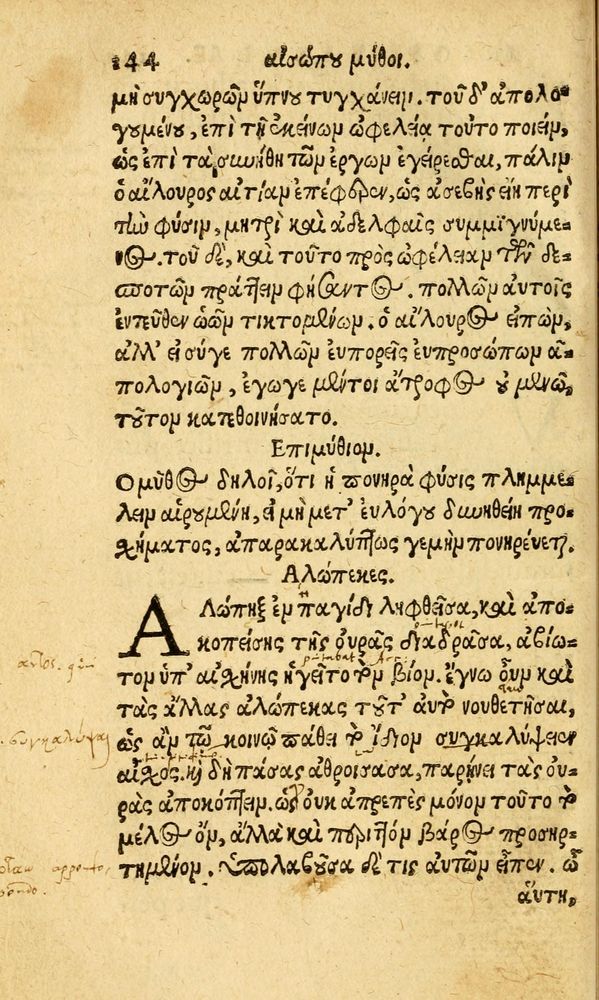 144 αἰσώπου μύθοι.
μὴ συγχωρῶν ὕπνου τυγχάνειν. τοῦ δ' ἀπολο-
γουμένου, ἐπὶ τῇ ἐκείνων ὠφελείᾳ τοῦτο ποιεῖν,
ὡς ἐπὶ τὰ συνήθη τῶν ἔργων ἐγείρεσθαι, πάλιν
ὁ αἴλουρος αἰτίαν ἐπέφερεν, ὡς ἀσεβὴς εἴη περὶ
τὴν φύσιν, μητρὶ καὶ ἀδελφαῖς συμμιγνύμε-
νος. τοῦ δὲ, καὶ τοῦτο πρὸς ὠφέλειαν τῶν δε-
σποτῶν πράττειν φήσαντος. πολλῶν αὐτοῖς
ἐντεῦθεν ὠῶν τικτομένων. ὁ αἴλουρος εἰπὼν,
ἀλλ' εἰ σύγε πολλῶν εὐπορεῖς εὐπροσώπων ἀ-
πολογιῶν, ἔγωγε μέντοι ἄτροφος οὐ μενῶ,
τοῦτον κατεθοινήσατο.
Επιμύθιον.
Ο μῦθος δηλοῖ, ὅτι ἡ πονηρὰ φύσις πλημμε-
λεῖν αἱρουμένη, εἰ μὴ μετ' εὐλόγου δυνηθείη προ-
σχήματος, ἀπαρακαλύπτως γεμὴν πονηρεύεται.
Αλώπεκες.
ΑΛώπηξ ἐν παγίδι ληφθεῖσα, καὶ ἀπο-
κοπείσης τῆς οὐρᾶς διαδρᾶσα, ἀβίω-
τον ὑπ' αἰσχύνης ἡγεῖτο τὸν βίον. ἔγνω οὖν καὶ
τὰς ἄλλας ἀλώπεκας τοῦτ' αὐτὸ νουθετῆσαι,
ὡς ἂν τῷ κοινῷ πάθει τὸ ἴδιον συγκαλύψειεν
αἶσχος. καὶ δὴ πάσας ἀθροίσασα, παρῄνει τὰς οὐ-
ρὰς ἀποκόπτειν. ὡς οὐκ ἀπρεπὲς μόνον τοῦτο τὸ
μέλος ὂν, ἀλλὰ καὶ περιττὸν βάρος προσηρ-
τημένον. ὑπολαβοῦσα δέ τις αὐτῶν εἶπεν. ὦ
αὕτη,